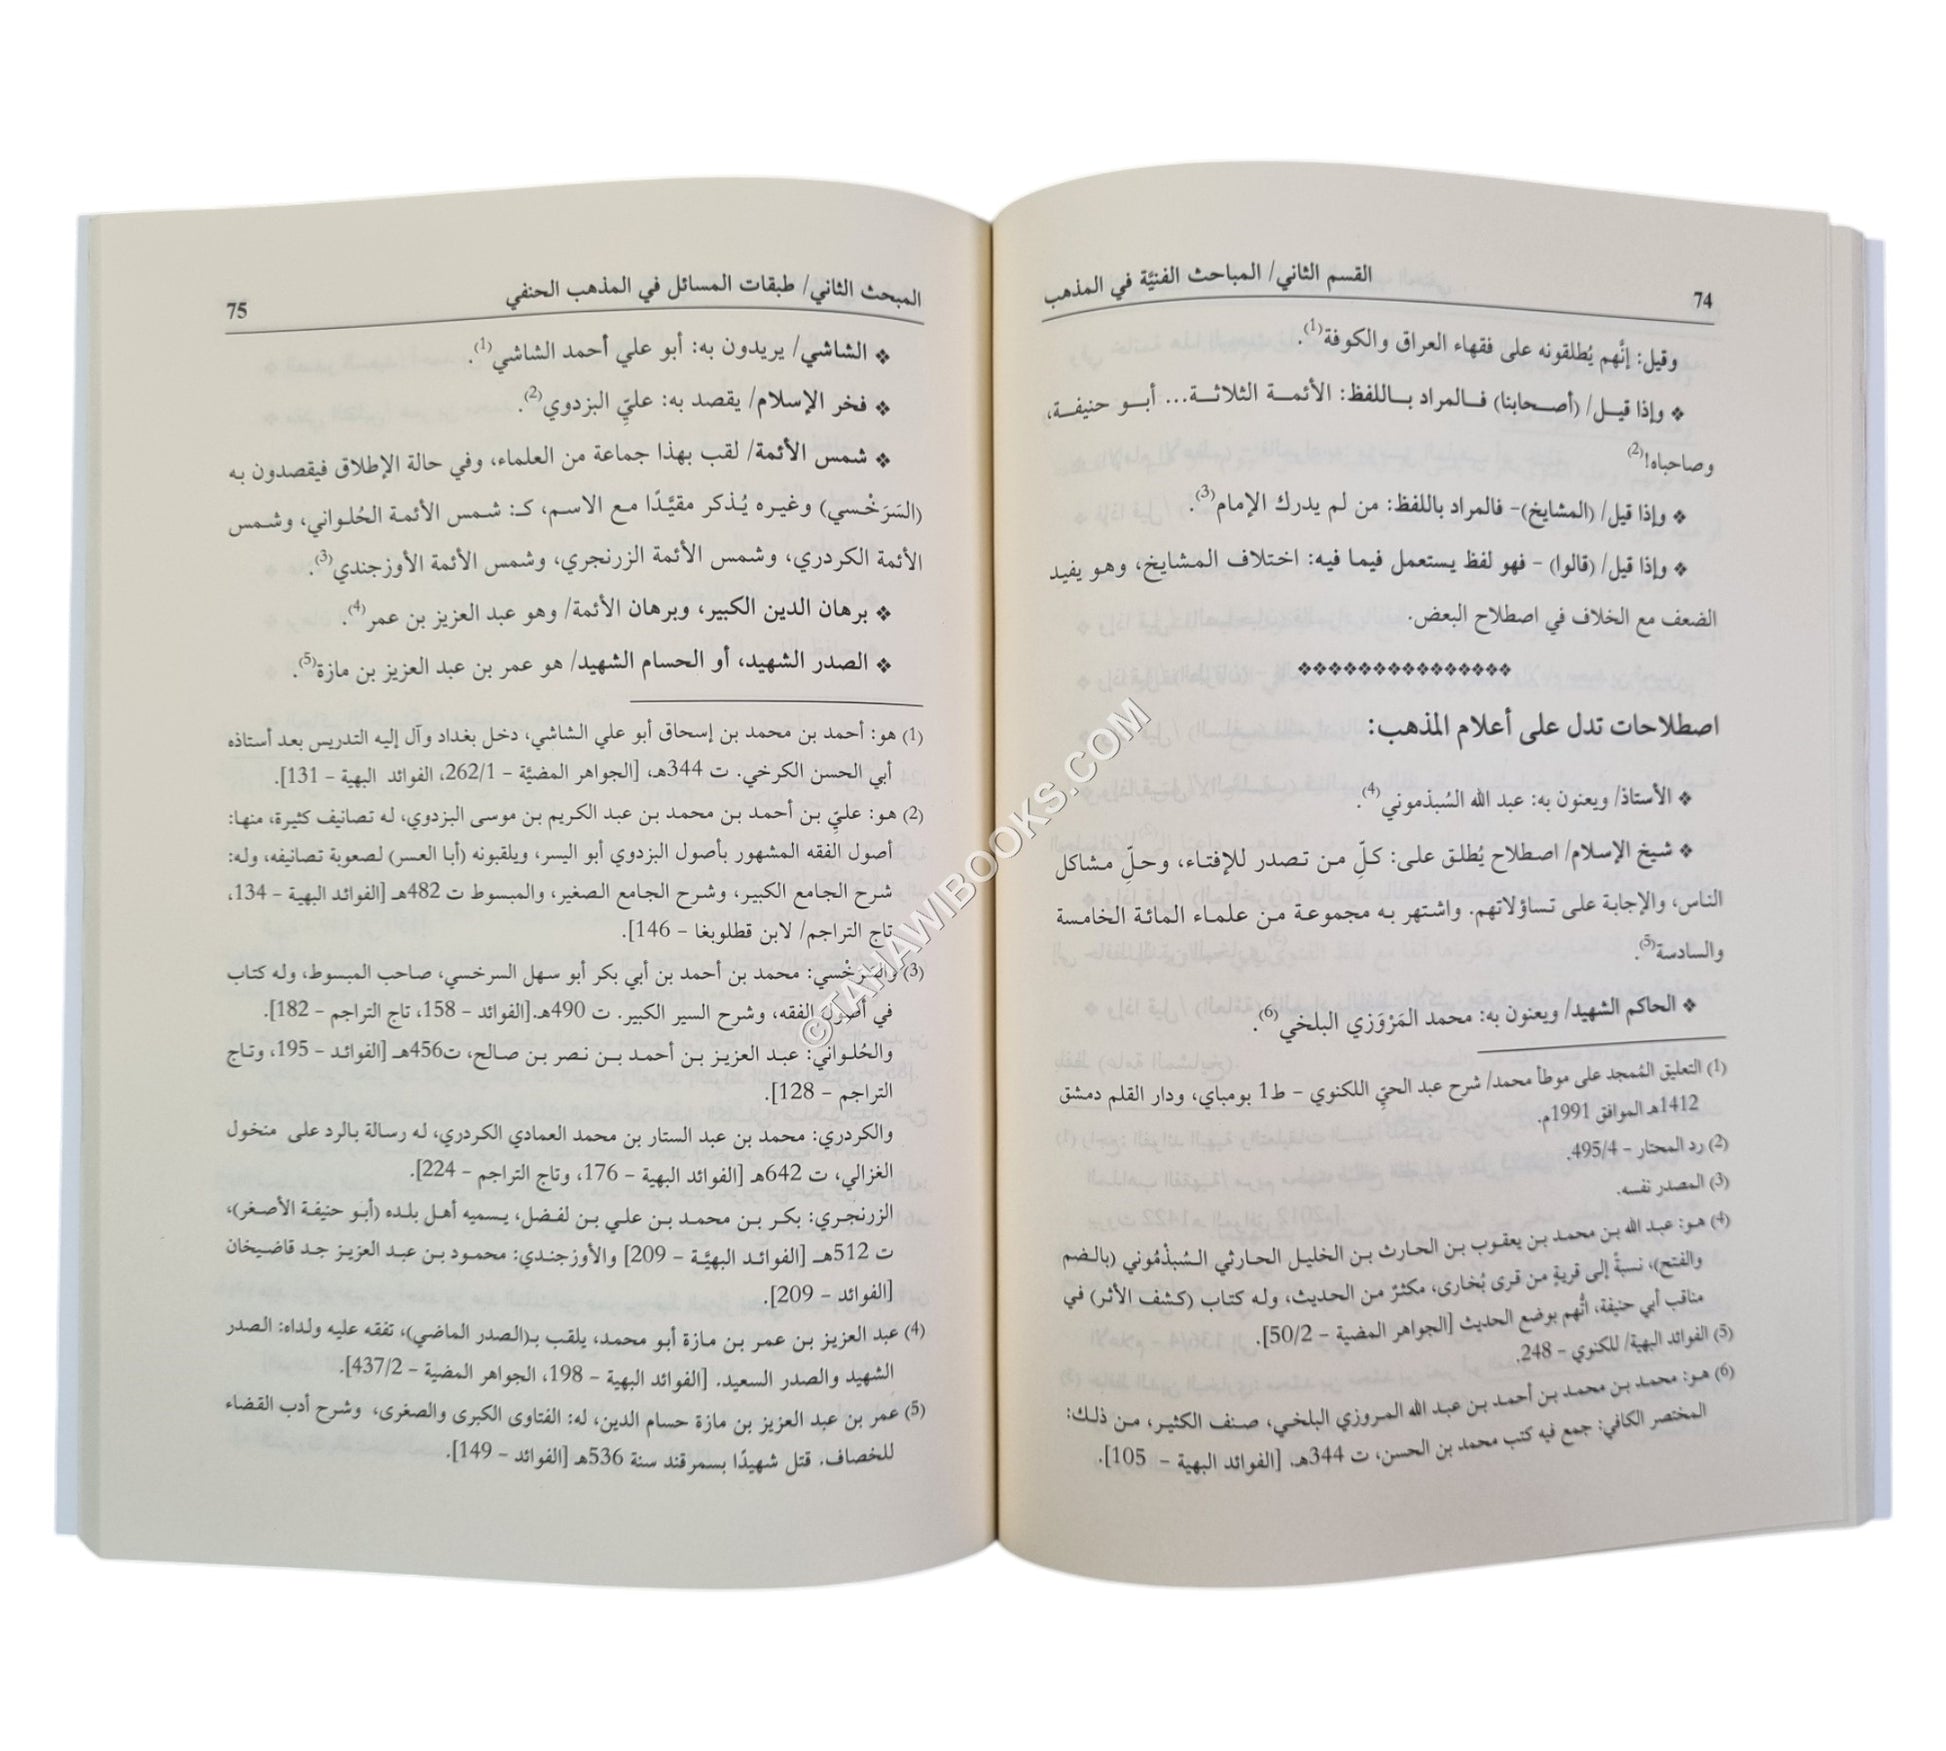 74 القسم الثاني/ المباحث الفنيَّة في المذهب
وقيل: إنَّهم يُطلقونه على فقهاء العراق والكوفة(1).
❖ وإذا قيـل/ (أصـحابنا) فـالمراد بـاللفظ: الأئمـة الثلاثـة... أبـو حنيفـة،
وصاحباه!(2)
❖ وإذا قيل/ (المشايخ)– فالمراد باللفظ: من لم يدرك الإمام(3).
❖ وإذا قيل/ (قالوا) – فهو لفظ يستعمل فيما فيه: اختلاف المشايخ، وهـو يفيد
الضعف مع الخلاف في اصطلاح البعض.
❖❖❖❖❖❖❖❖❖❖❖❖❖❖❖
اصطلاحات تدل على أعلام المذهب:
❖ الأستاذ/ ويعنون به: عبد الله السُبذموني(4).
❖ شيخ الإسلام/ اصطلاح يُطلق على: كلِّ من تصدر للإفتاء، وحلِّ مشاكل
الناس، والإجابة على تساؤلاتهم. واشتهر به مجموعة من علماء المائة الخامسة
والسادسة(5).
❖ الحاكم الشهيد/ ويعنون به: محمد المَرْوَزي البلخي(6).
(1) التعليق المُمجد على موطأ محمد/ شرح عبد الحيِّ اللكنوي – ط1 بومباي، ودار القلم دمشق
1412هـ الموافق 1991م.
(2) رد المحتار – 495/4.
(3) المصدر نفسه.
(4) هو: عبد الله بن محمد بن يعقوب بن الحارث بن الخليل الحارثي السُبذْمُوني (بالضم
والفتح)، نسبةً إلى قريةٍ من قرى بُخارى، مكثرٌ من الحديث، وله كتاب (كشف الأثر) في
مناقب أبي حنيفة، اتُّهم بوضع الحديث [الجواهر المضية – 50/2].
(5) الفوائد البهية/ للكنوي – 248.
(6) هو: محمد بن محمد بن أحمد بن عبد الله المروزي البلخي، صنف الكثير، من ذلك:
المختصر الكافي: جمع فيه كتب محمد بن الحسن، ت 344هـ. [الفوائد البهية – 105].
المبحث الثاني/ طبقات المسائل في المذهب الحنفي 75
❖ الشاشي/ يريدون به: أبو علي أحمد الشاشي(1).
❖ فخر الإسلام/ يقصد به: عليِّ البزدوي(2).
❖ شمس الأئمة/ لقب بهذا جماعة من العلماء، وفي حالة الإطلاق فيقصدون به
(السَرَخْسي) وغيره يُذكر مقيَّدًا مع الاسم، كـ: شمس الأئمة الحُلواني، وشمس
الأئمة الكردري، وشمس الأئمة الزرنجري، وشمس الأئمة الأوزجندي(3).
❖ برهان الدين الكبير، وبرهان الأئمة/ وهو عبد العزيز بن عمر(4).
❖ الصدر الشهيد، أو الحسام الشهيد/ هو عمر بن عبد العزيز بن مازة(5).
(1) هو: أحمد بن محمد بن إسحاق أبو علي الشاشي، دخل بغداد وآل إليه التدريس بعد أستاذه
أبي الحسن الكرخي. ت 344هـ، [الجواهر المضيَّة – 262/1، الفوائد البهية – 131].
(2) هو: عليِّ بن أحمد بن محمد بن عبد الكريم بن موسى البزدوي، له تصانيف كثيرة، منها:
أصول الفقه المشهور بأصول البزدوي أبو اليسر، ويلقبونه (أبا العسر) لصعوبة تصانيفه، وله:
شرح الجامع الكبير، وشرح الجامع الصغير، والمبسوط ت 482هـ [الفوائد البهية – 134،
تاج التراجم/ لابن قطلوبغا – 146].
(3) والسَرَخْسي: محمد بن أحمد بن أبي بكر أبو سهل السرخسي، صاحب المبسوط، وله كتاب
في أصول الفقه، وشرح السير الكبير. ت 490هـ.[الفوائد – 158، تاج التراجم – 182].
والحُلواني: عبد العزيز بن أحمد بن نصر بن صالح، ت456هـ [الفوائد – 195، وتاج
التراجم – 128].
والكردري: محمد بن عبد الستار بن محمد العمادي الكردري، له رسالة بالرد على منخول
الغزالي، ت 642هـ [الفوائد البهية – 176، وتاج التراجم – 224].
الزرنجري: بكر بن محمد بن علي بن لفضل، يسميه أهل بلده (أبو حنيفة الأصغر)،
ت 512هـ [الفوائد البهيَّة – 209] والأوزجندي: محمود بن عبد العزيز جد قاضيخان
[الفوائد – 209].
(4) عبد العزيز بن عمر بن مازة أبو محمد، يلقب بـ(الصدر الماضي)، تفقه عليه ولداه: الصدر
الشهيد والصدر السعيد. [الفوائد البهية – 198، الجواهر المضية – 437/2].
(5) عمر بن عبد العزيز بن مازة حسام الدين، له: الفتاوى الكبرى والصغرى، وشرح أدب القضاء
للخصاف. قتل شهيدًا بسمرقند سنة 536هـ [الفوائد – 149].
©TAHAWIBOOKS.COM